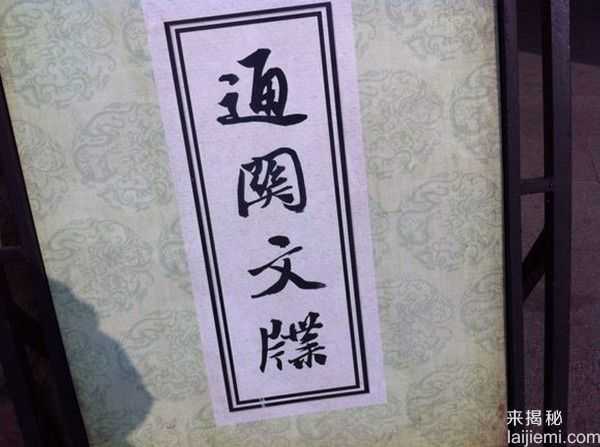 通
関
文
牒
来揭秘
laijiemi.com